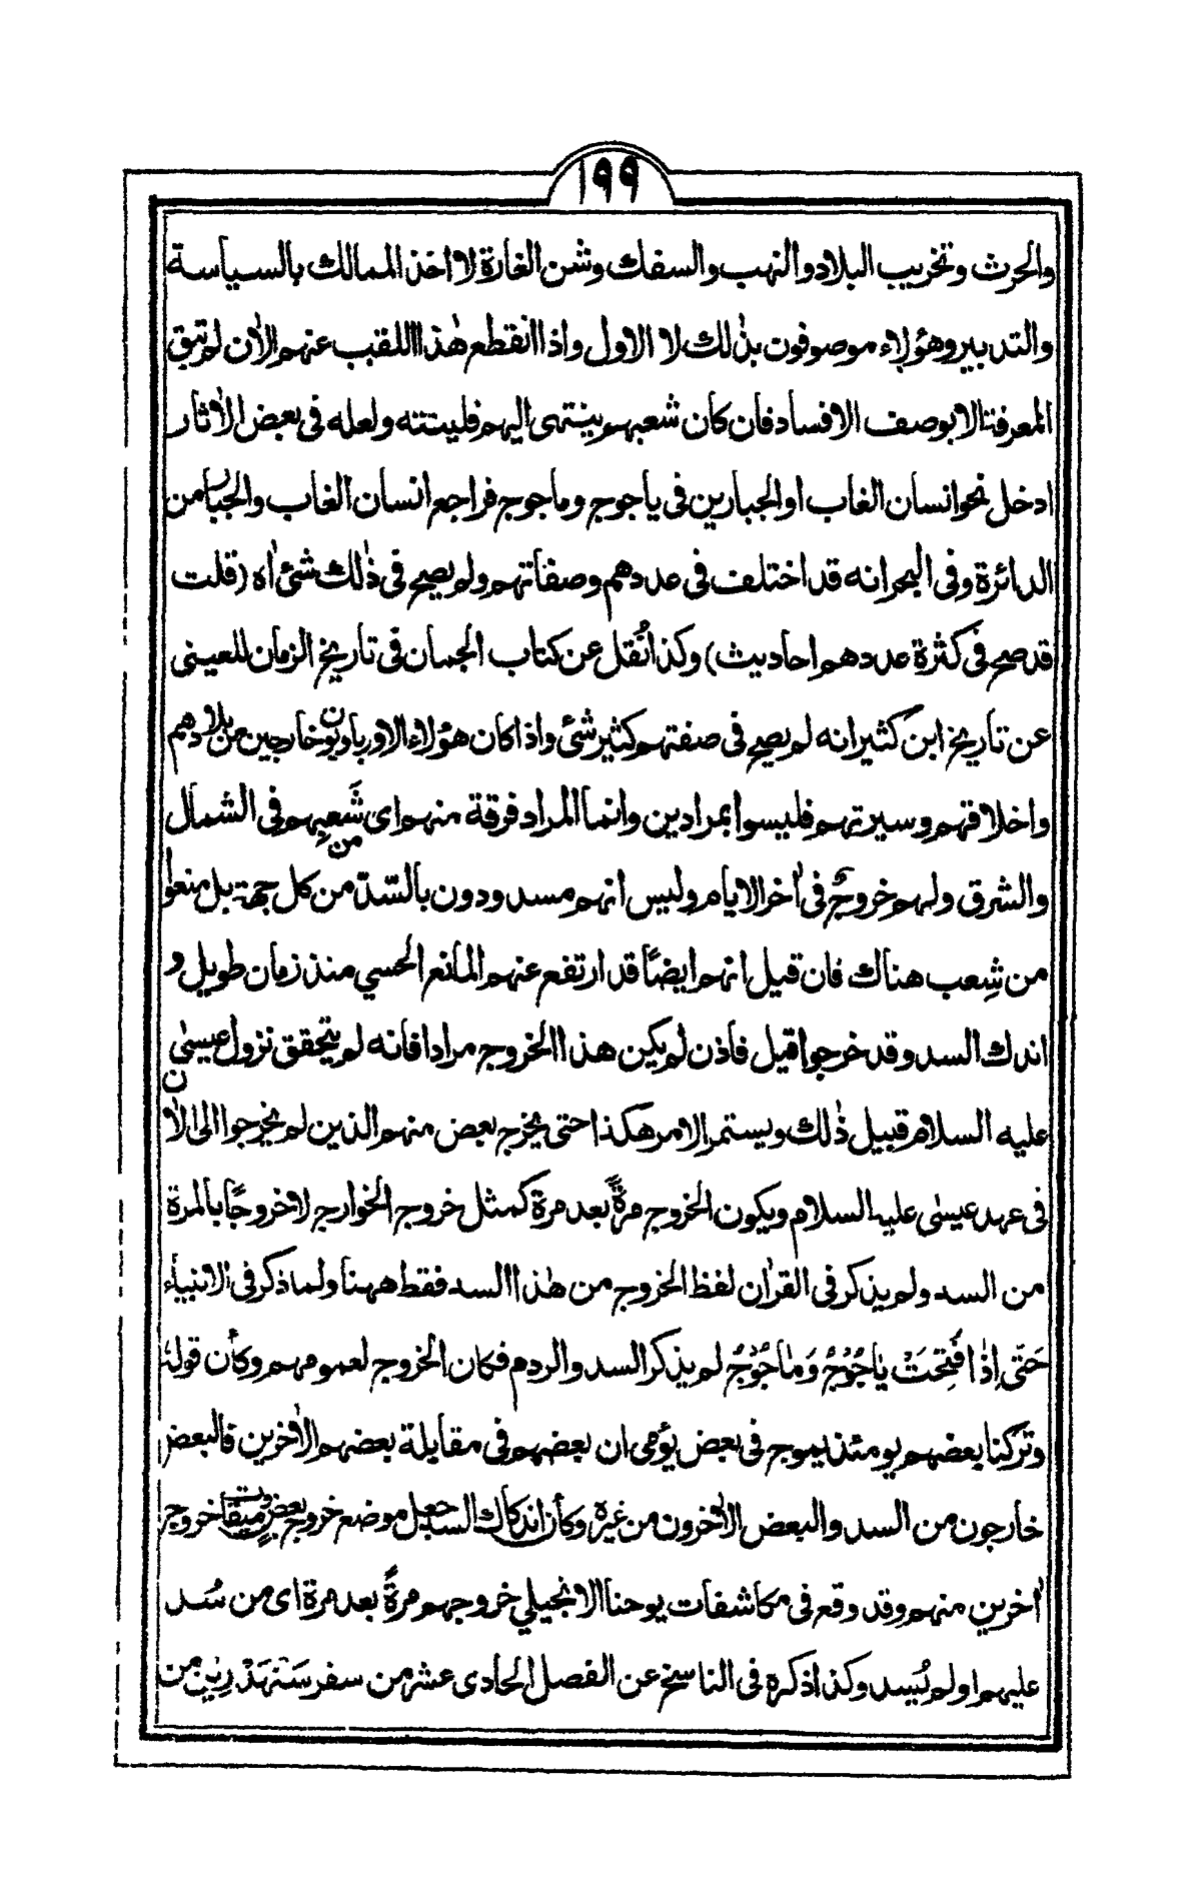 ١٩٩
والحرث وتخريب البلاد والنهب والسفك وشن الغارة لا اخذ الممالك بالسياسة
والتدبير وهؤلاء موصوفون بذٰلك لا الاول واذا انقطع هٰذا اللقب عنهم الاٰن لم تبق
المعرفة الا بوصف الافساد فان كان شعبهم ينتهى اليهم فلينته ولعله فى بعض الاٰثار
ادخل نحو انسان الغاب او الجبارين فى ياجوج وماجوج فراجع انسان الغاب والجبار من
الدائرة وفى البحر انه قد اختلف فى عددهم وصفاتهم ولم يصح فى ذٰلك شئ اٰه (قلت
قد صح فى كثرة عددهم احاديث) وكذا نُقل عن كتاب الجمان فى تاريخ الزمان للعينى
عن تاريخ ابن كثير انه لم يصح فى صفتهم كثير شئ واذا كان هؤلاء الاورباويون خارجين من بلادهم
واخلاقهم وسيرتهم فليسوا بمرادين وانما المراد فرقة منهم اى من شَعبِهم فى الشمال
والشرق ولهم خروجٌ فى اٰخر الايام وليس انهم مسدودون بالسّدّ من كل جهة بل منعوا
من شِعب هناك فان قيل انهم ايضًا قد ارتفع عنهم المانع الحسي منذ زمان طويل و
اندك السد وقد خرجوا قيل فاذن لم يكن هذا الخروج مرادا فانه لم يتحقق نزول عيسىٰ
عليه السلام قبيل ذٰلك ويستمر الامر هكذا حتى يخرج بعض منهم الذين لم يخرجوا الى الاٰن
فى عهد عيسٰى عليه السلام ويكون الخروج مرةً بعد مرة كمثل خروج الخوارج لا خروجًا بالمرة
من السد ولم يذكر فى القراٰن لفظ الخروج من هٰذا السد فقط ههنا ولما ذكر فى الانبياء
حَتّٰى اِذَا فُتِحَتْ يَاْجُوْجُ وَمَاْجُوْجُ لم يذكر السد والردم فكان الخروج لعمومهم وكأن قوله
وتركنا بعضهم يومئذ يموج فى بعض يؤمى ان بعضهم فى مقابلة بعضهم الاٰخرين فالبعض
خارجون من السد والبعض الاٰخرون من غيره وكأن اندكاك السد جعل موضع خروج بعض وميقات خروج
اٰخرين منهم وقد وقع فى مكاشفات يوحنا الانجيلي خروجهم مرةً بعد مرة اى من سُد
عليهم او لم يُسد وكذا ذكره فى الناسخ عن الفصل الحادى عشر من سفر سَنْهَذْرِيْن من